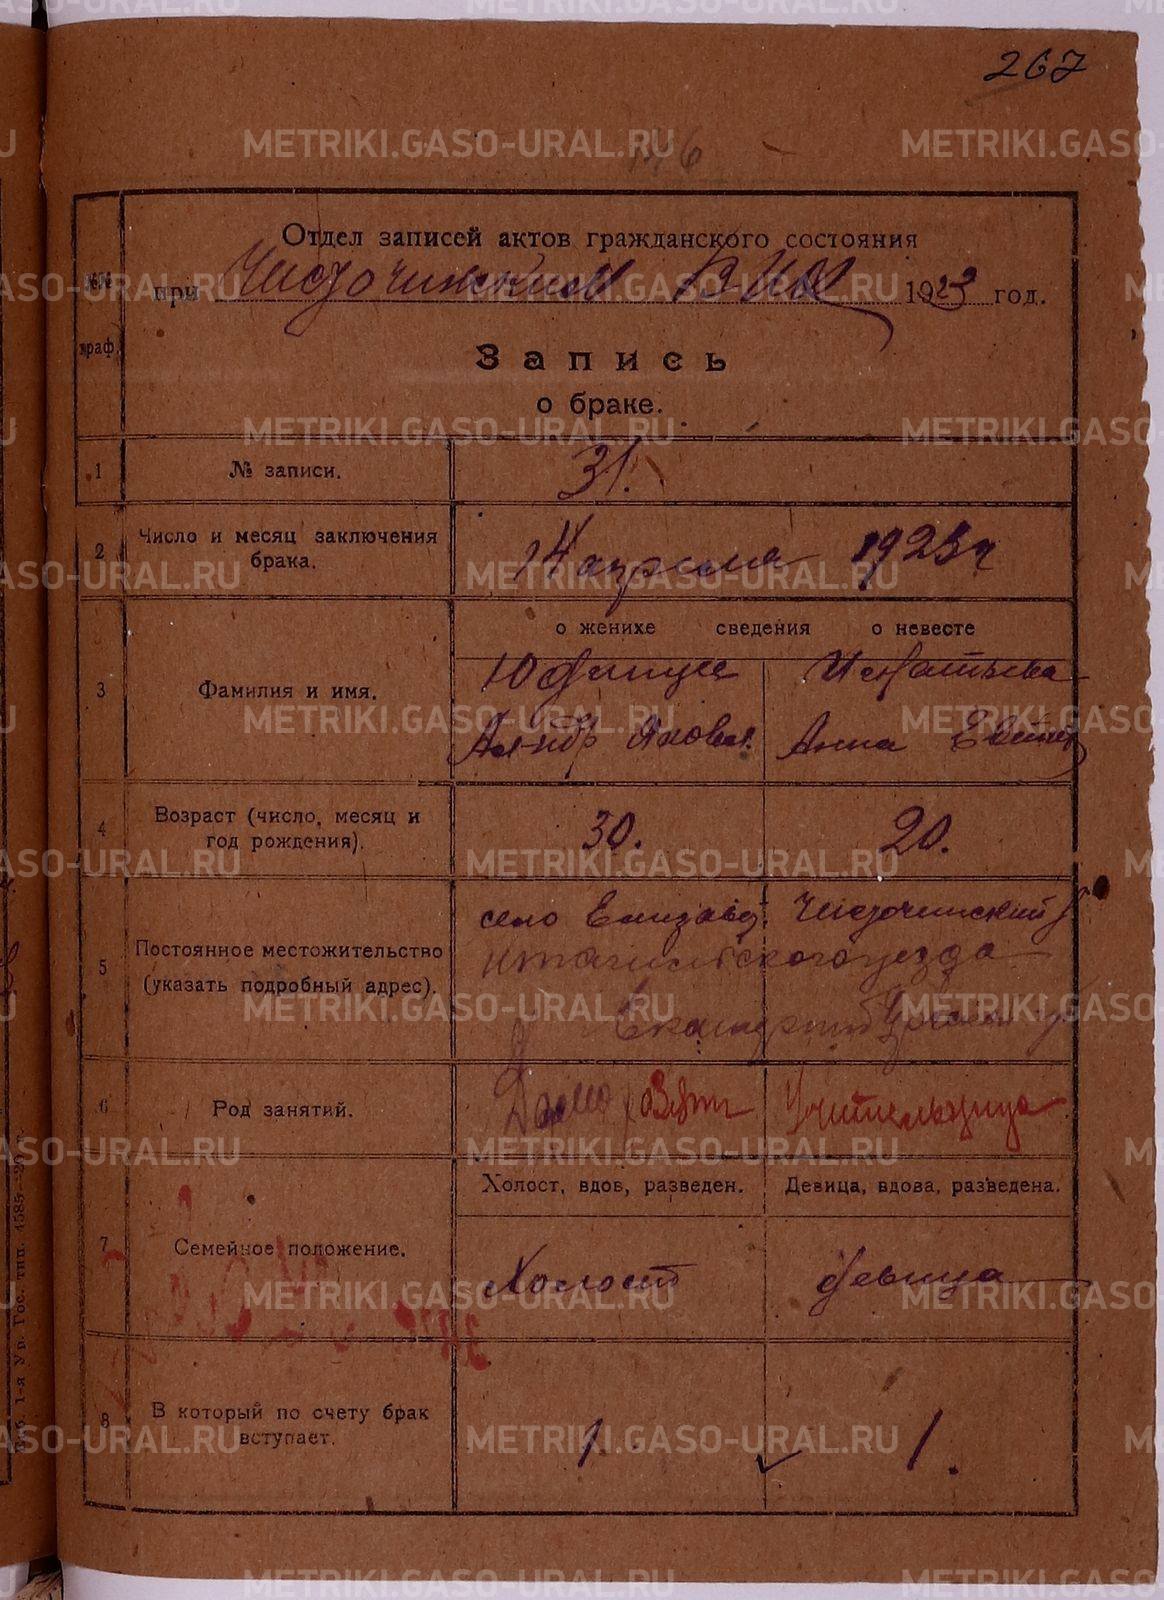 267
146
METRIKI.GASO-URAL.RU
№№ граф.
Отдел записей актов гражданского состояния
при ВИК 1923 год.
Запись
о браке.
1 № записи. 31.
2 Число и месяц заключения брака. 14 апреля 1923 г
о женихе сведения о невесте
3 Фамилия и имя.
Игнатьева
Ал-ндр Яковл. Анна
4 Возраст (число, месяц и год рождения). 30. 20.
5 Постоянное местожительство (указать подробный адрес).
село Елизавет.
Нтагильского уезда
6 Род занятий. Учительница
Холост, вдов, разведен. Девица, вдова, разведена.
7 Семейное положение. Холост девица
8 В который по счету брак вступает. 1. 1.
1-я Ур. Гос. тип. 4585—20 г.